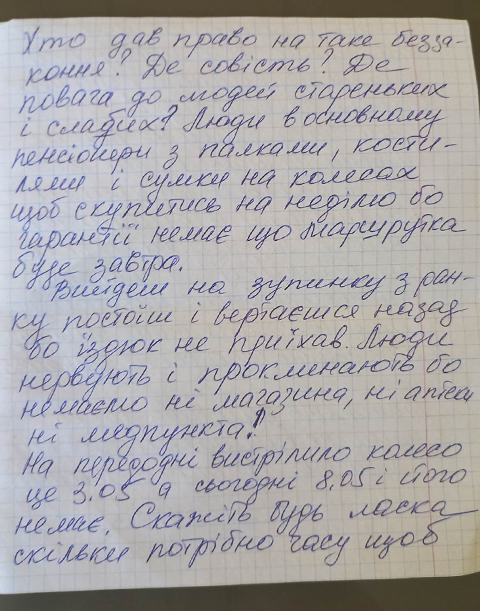 Хто дав право на таке безза-
коння? Де совість? Де
повага до людей стареньких
і слабих? Люди в основному
пенсіонери з палками, кости-
лями і сумки на колесах
щоб скупитись на неділю бо
гарантії немає що маршрутка
буде завтра.
Вийдеш на зупинку з ран-
ку постоїш і вертаєшся назад
бо їздюк не приїхав. Люди
нервують і проклинають бо
немаємо ні магазина, ні аптеки
ні медпункта!
На передодні вистрілило колесо
це 3.05 а сьогодні 8.05 і його
немає. Скажіть будь ласка
скільки потрібно часу щоб